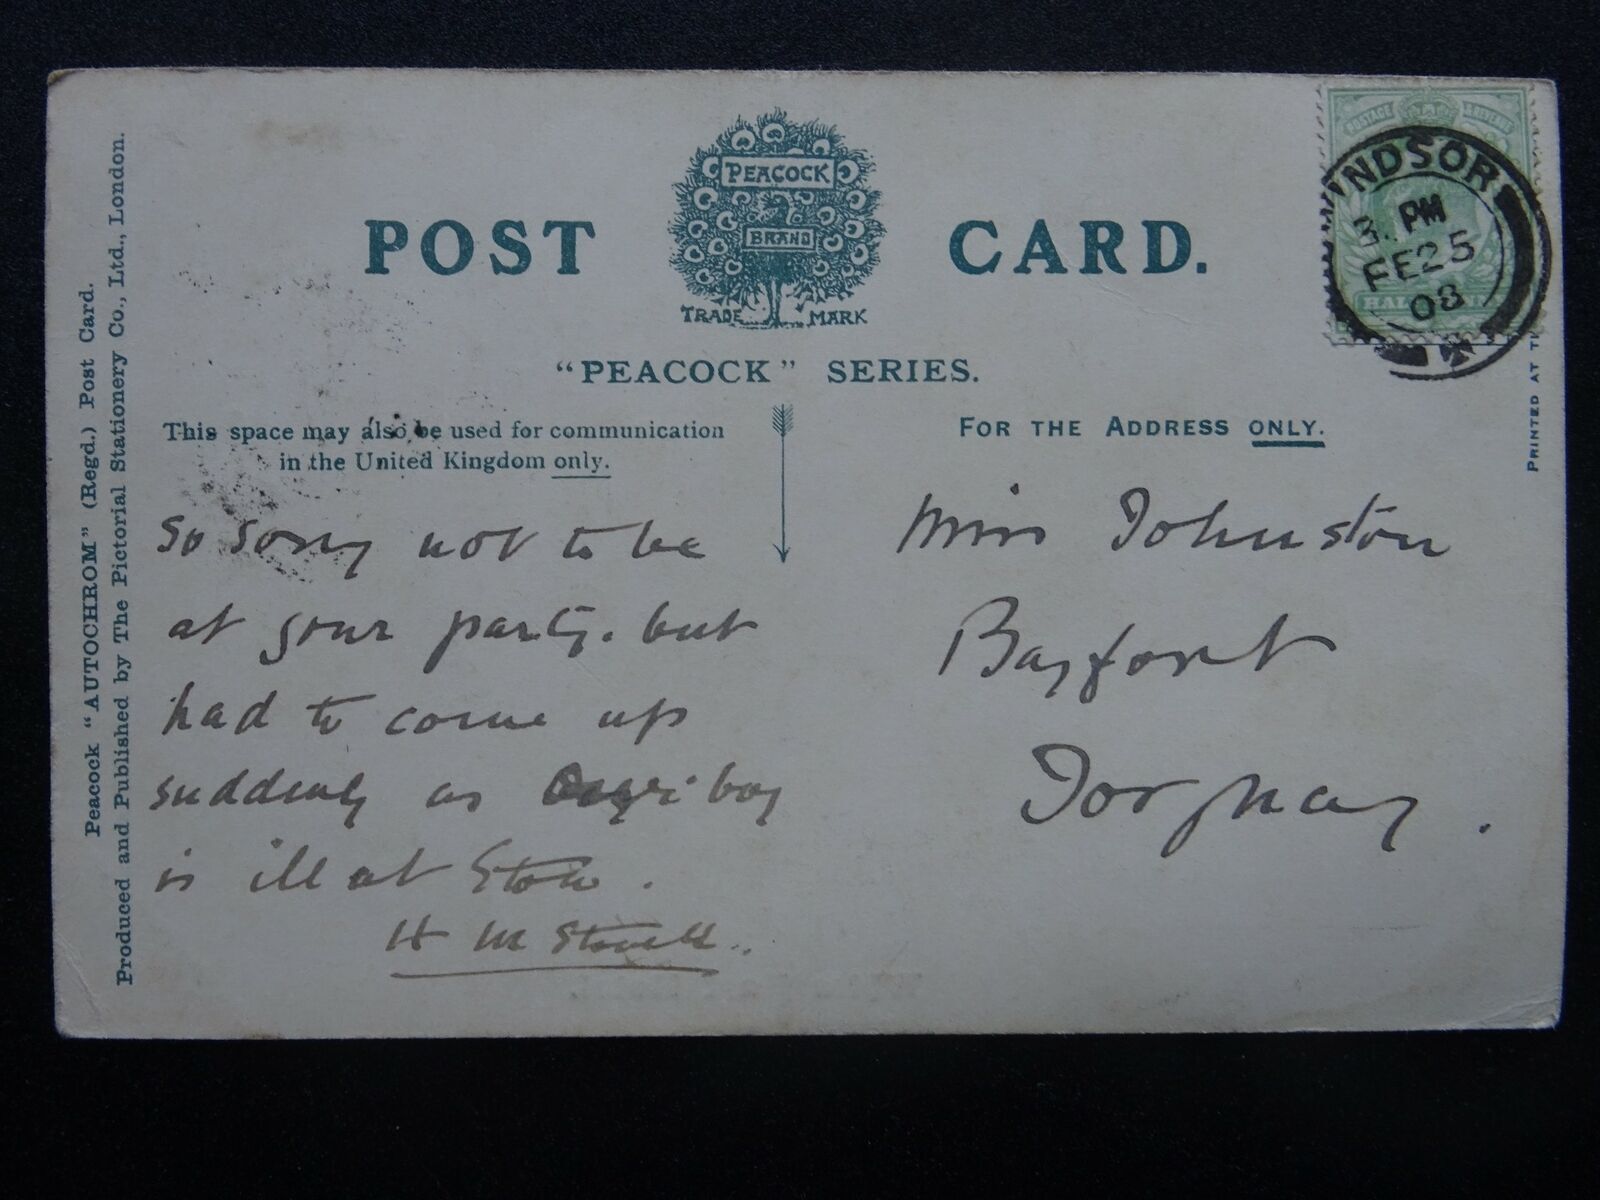 POST CARD.
PEACOCK
BRAND
TRADE MARK
"PEACOCK" SERIES.
This space may also be used for communication
in the United Kingdom only.
FOR THE ADDRESS ONLY.
Peacock "AUTOCHROM" (Regd.) Post Card.
Produced and Published by The Pictorial Stationery Co., Ltd., London.
PRINTED AT
POSTAGE REVENUE
INDSOR
3. PM
FE 25
08
so sorry not to be
at your party. but
had to come up
suddenly as boy
is ill at Stow.
H M
Miss Johnston
Bayfort
Torquay.